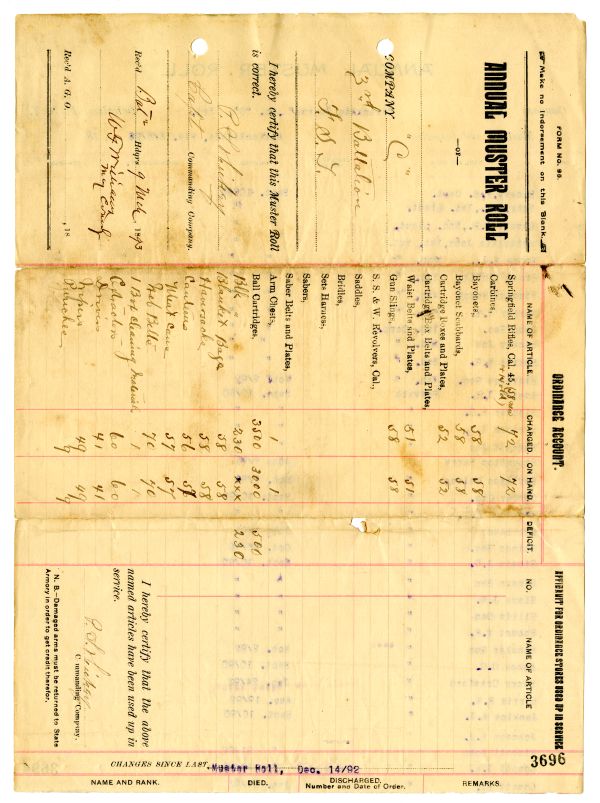 FORM No. 99.
Make no Indorsement on this Blank.
ANNUAL MUSTER ROLL
—OF—
COMPANY "C"
3rd Battalion
I hereby certify that this Muster Roll
is correct.
Capt
Commanding Company.
Rec'd Batn Hdqrs 9 Mch 1893
Rec'd A. G. O. , 18
ORDINANCE ACCOUNT.
NAME OF ARTICLE CHARGED. ON HAND. DEFICIT.
Springfield Rifles, Cal. 45, 72 72
Carbines,
Bayonets, 58 58
Bayonet Scabbards, 58 58
Cartridge Boxes and Plates, 52 52
Cartridge Box Belts and Plates,
Waist Belts and Plates, 51 51
Gun Slings, 58 58
S. S. & W. Revolvers, Cal.,
Saddles,
Bridles,
Sets Harness,
Sabers,
Saber Belts and Plates,
Arm Chests, 1 1
Ball Cartridges, 3500 3000 500
Blk " 230 xxx 230
Blanket Bags 58 58
Haversacks 58 58
Canteens 56
Meat Cans 57 57
Web Belts 70 70
1 Box Cleaning Material 1 1
60 60
41 41
49 49
Pouches 9 9
AFFIDAVIT FOR ORDINANCE STORES USED UP IN SERVICE
NO. NAME OF ARTICLE
I hereby certify that the above
named articles have been used up in
service.
Commanding Company.
N. B.—Damaged arms must be returned to State
Armory in order to get credit therefor.
3696
CHANGES SINCE LAST Muster Roll, Dec. 14/92
NAME AND RANK. DIED. DISCHARGED. Number and Date of Order. REMARKS.